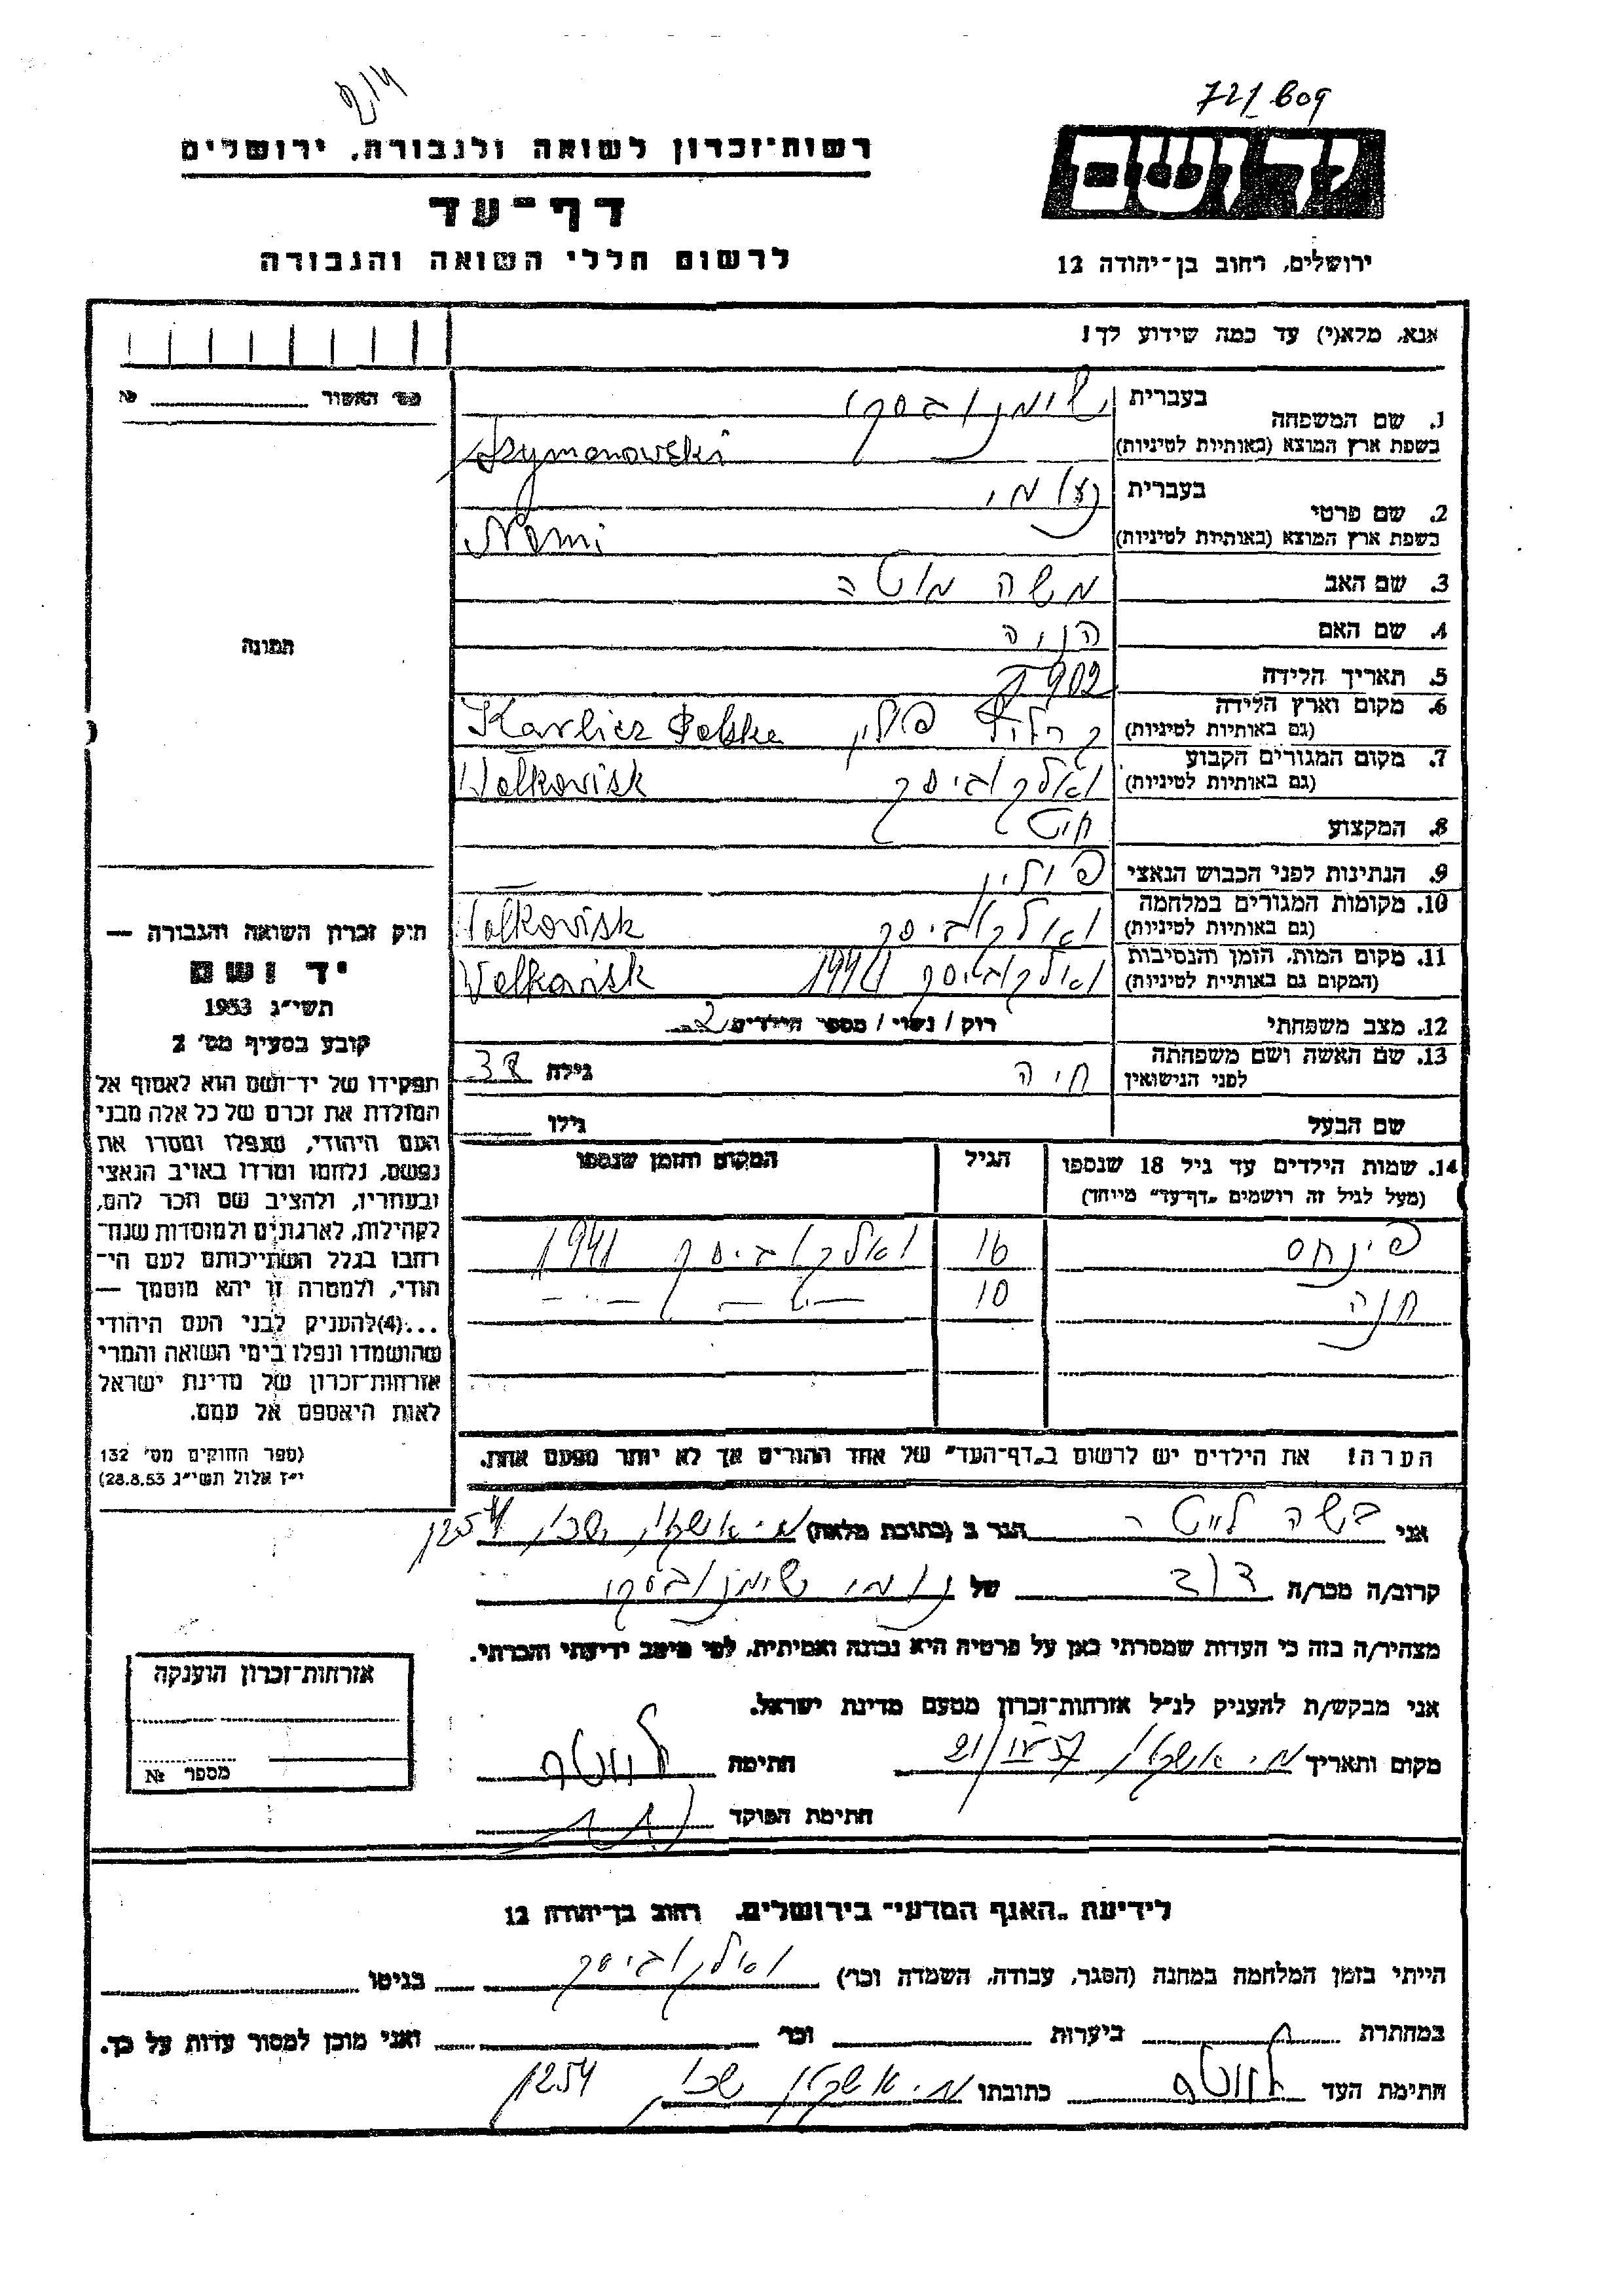 214
721/609
רשות־זכרון לשואה ולגבורה, ירושלים
יד ושם
דף־עד
לרשום חללי השואה והגבורה
ירושלים, רחוב בן־יהודה 12
אנא, מלא(י) עד כמה שידוע לך!
מס' האשור №
1. שם המשפחה בעברית שימנובסקי
בשפת ארץ המוצא (באותיות לטיניות) Szymonowski
2. שם פרטי בעברית נעומי
בשפת ארץ המוצא (באותיות לטיניות) Nomi
3. שם האב משה מוטה
4. שם האם הניה
תמונה
5. תאריך הלידה 902
6. מקום וארץ הלידה
(גם באותיות לטיניות) פולין Karlicz Polska
7. מקום המגורים הקבוע
(גם באותיות לטיניות) ואלקוביסק Wolkovisk
8. המקצוע חיט
9. הנתינות לפני הכבוש הנאצי פולין
10. מקומות המגורים במלחמה
(גם באותיות לטיניות) ואולקוביסק Wolkovisk
11. מקום המות, הזמן והנסיבות
(המקום גם באותיית לטיניות) ואלקוביסק 1941 Volkovisk
12. מצב משפחתי רוק / נשוי / מספר הילדים 2
13. שם האשה ושם משפחתה
לפני הנישואין חיה גילה 38
שם הבעל גילו
14. שמות הילדים עד גיל 18 שנספו הגיל המקום והזמן שנספו
(מעל לגיל זה רושמים „דף־עד" מיוחד)
פינחס 16 ואלקוביסק 1941
חנה 10
הערה! את הילדים יש לרשום ב„דף־העד" של אחד ההורים אך לא יותר מפעם אחת.
חוק זכרון השואה והגבורה —
יד ושם
תשי"ג 1953
קובע בסעיף מס' 2
תפקידו של יד־ושם הוא לאסוף אל
המולדת את זכרם של כל אלה מבני
העם היהודי, שנפלו ומסרו את
נפשם, נלחמו ומרדו באויב הנאצי
ובעוזריו, ולהציב שם וזכר להם,
לקהילות, לארגונים ולמוסדות שנח־
רבו בגלל השתייכותם לעם הי־
הודי, ולמטרה זו יהא מוסמך —
...(4)להעניק לבני העם היהודי
שהושמדו ונפלו בימי השואה והמרי
אזרחות־זכרון של מדינת ישראל
לאות היאספם אל עמם.
(ספר החוקים מס' 132
י"ז אלול תשי"ג 28.8.53)
אני בשה הגר ב (כתובת מלאה) מ. אשקלון שכון 1254
קרוב/ה מכר/ה דוד של נומי שימנובסקי
מצהיר/ה בזה כי העדות שמסרתי כאן על פרטיה היא נכונה ואמיתית, לפי מיטב ידיעתי והכרתי.
אני מבקש/ת להעניק לנ"ל אזרחות־זכרון מטעם מדינת ישראל.
מקום ותאריך מ. אשקלון חתימה
חתימת הפוקד
אזרחות־זכרון הוענקה
מספר №
לידיעת „האגף המדעי" בירושלים, רחוב בן־יהודה 12
הייתי בזמן המלחמה במחנה (הסגר, עבודה, השמדה וכו') ואלקוביסק בגיטו
במחתרת ביערות וכו' ואני מוכן למסור עדות על כך.
חתימת העד כתובתו מ. אשקלון שכון 1254